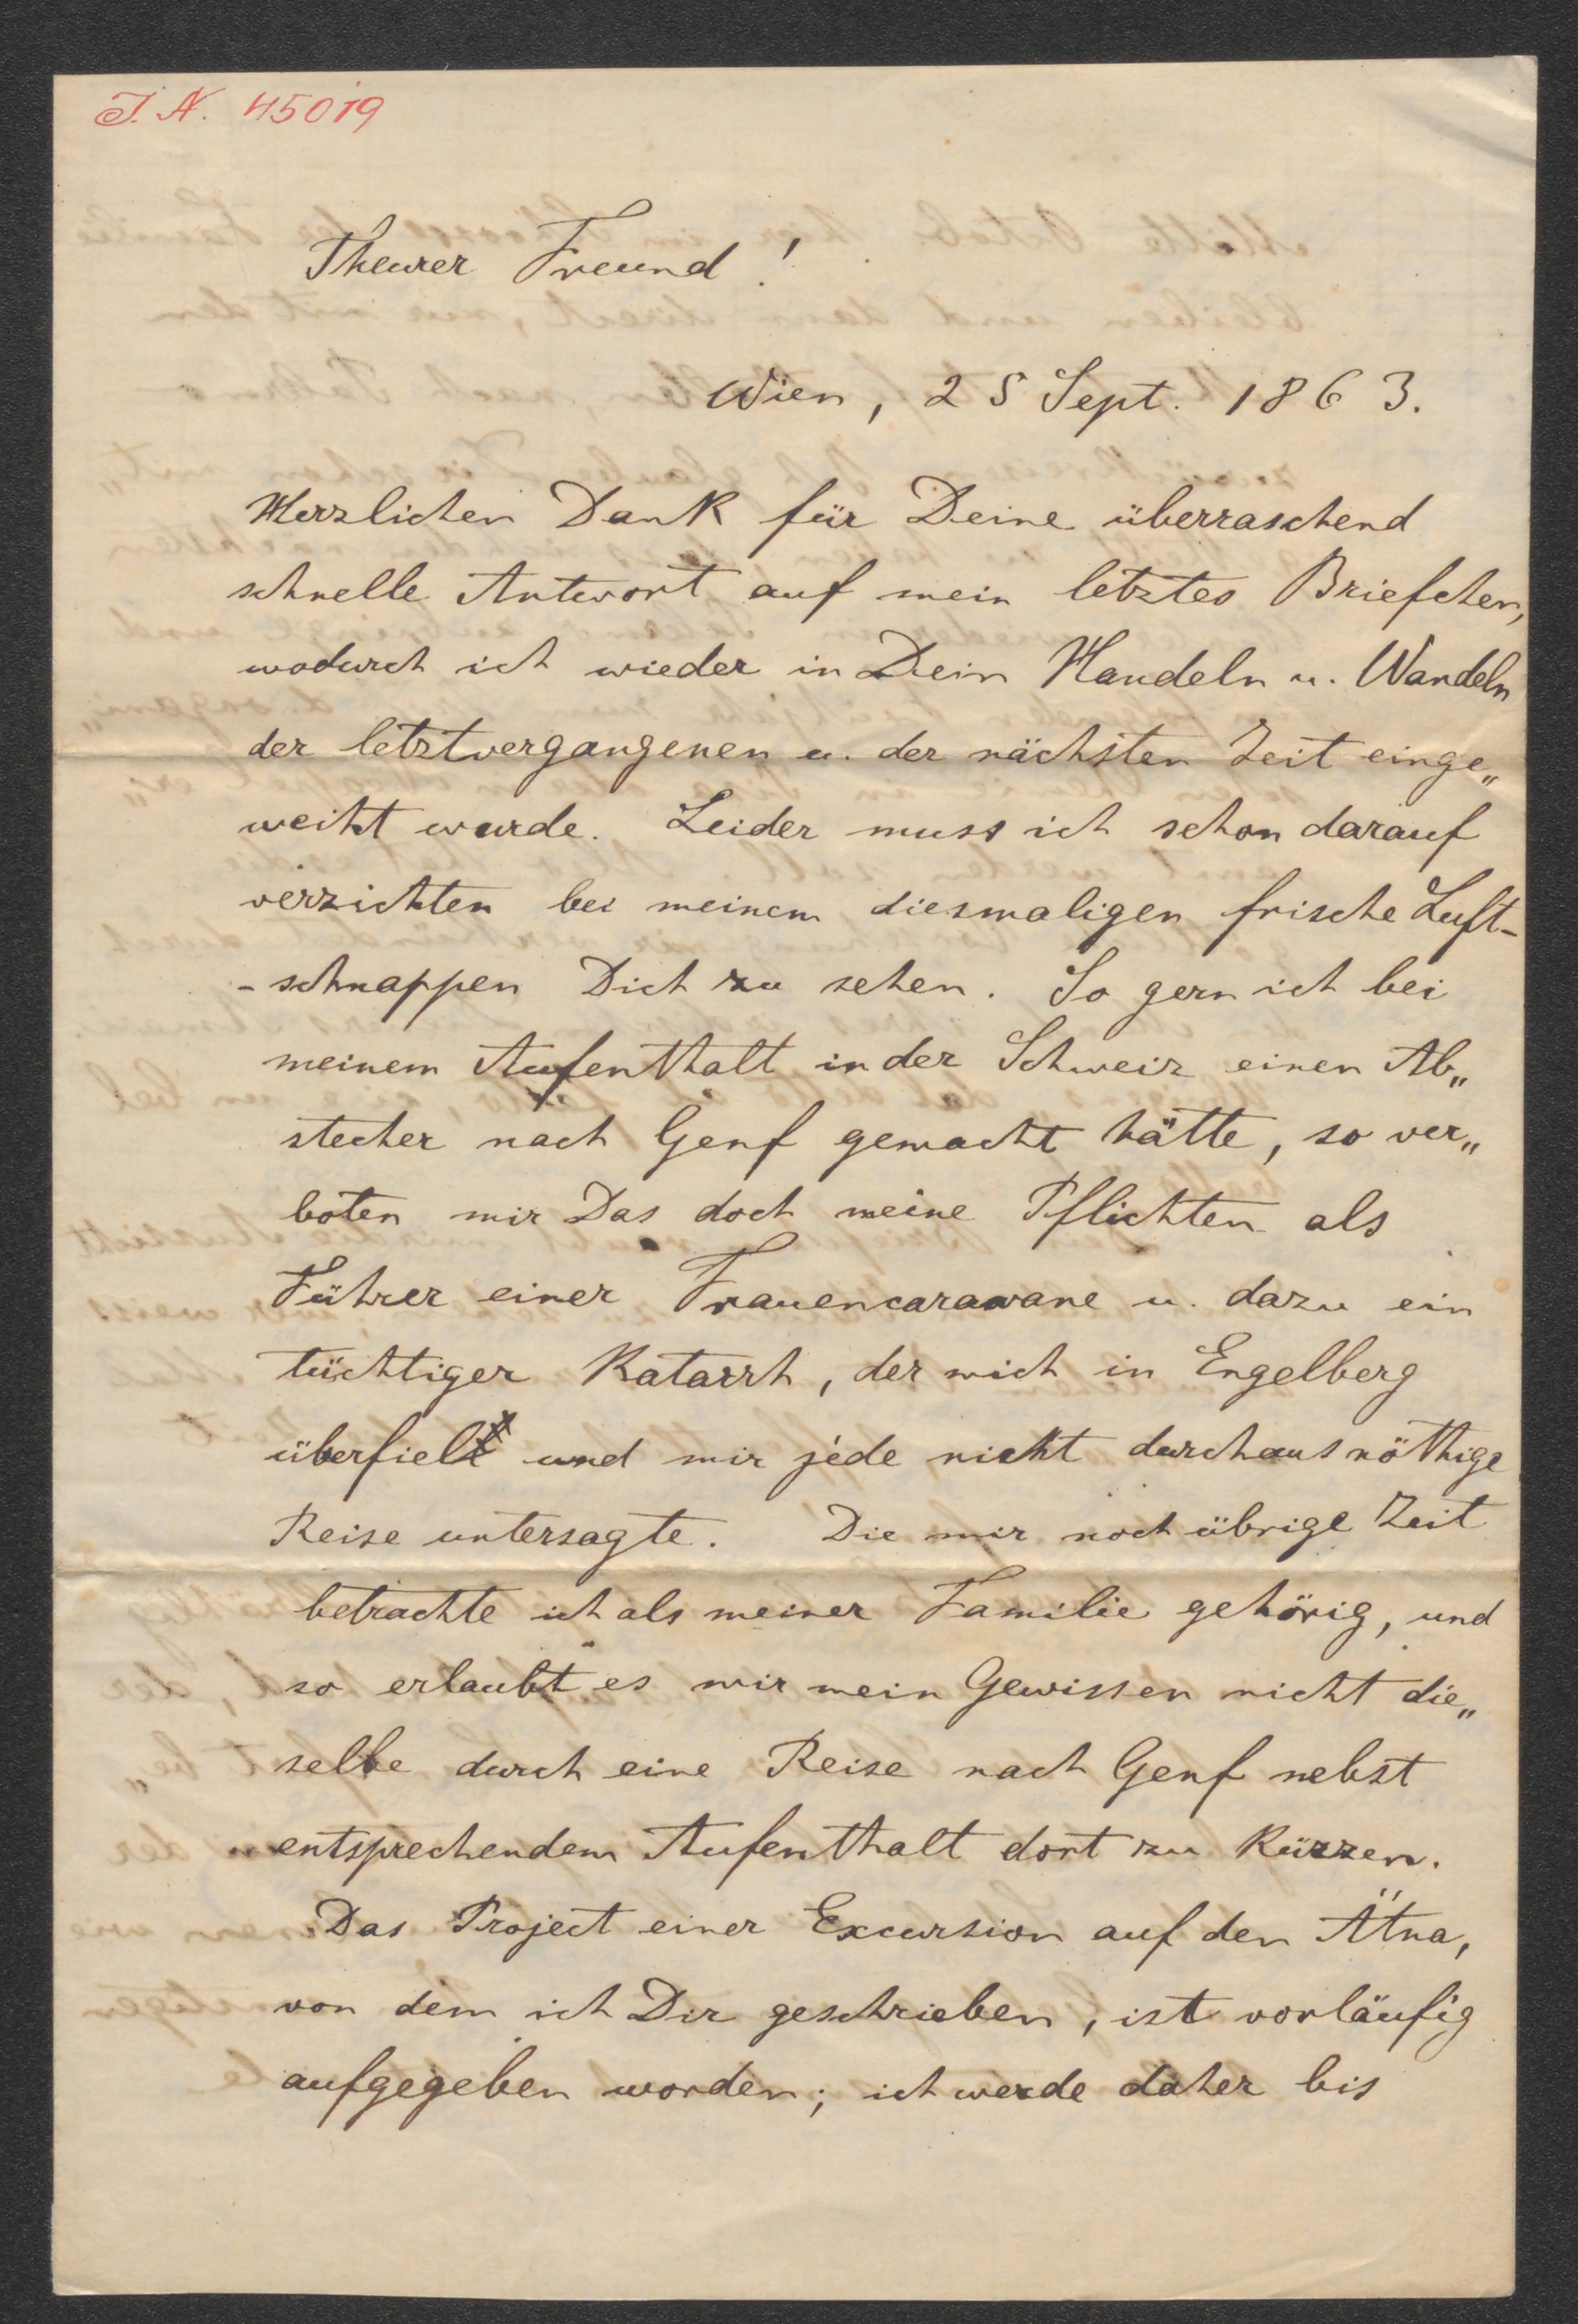 J. N. 45019
Theurer Freund!
Wien, 25 Sept. 1863.
Herzlichen Dank für Deine überraschend
schnelle Antwort auf mein letztes Briefchen,
wodurch ich wieder in Dein Handeln u. Wandeln
der letztvergangenen u. der nächsten Zeit einge„
weiht wurde. Leider muss ich schon darauf
verzichten bei meinem diesmaligen frische Luft-
-schnappen Dich zu sehen. So gern ich bei
meinem Aufenthalt in der Schweiz einen Ab„
stecher nach Genf gemacht hätte, so ver„
boten mir Das doch meine Pflichten als
Führer einer Frauencarawane u. dazu ein
tüchtiger Katarrh, der mich in Engelberg
überfiel und mir jede nicht durchaus nöthige
Reise untersagte. Die mir noch übrige Zeit
betrachte ich als meiner Familie gehörig, und
so erlaubt es mir mein Gewissen nicht die„
selbe durch eine Reise nach Genf nebst
entsprechendem Aufenthalt dort zu kürzen.
Das Project einer Excursion auf den Ätna,
von dem ich Dir geschrieben, ist vorläufig
aufgegeben worden; ich werde daher bis